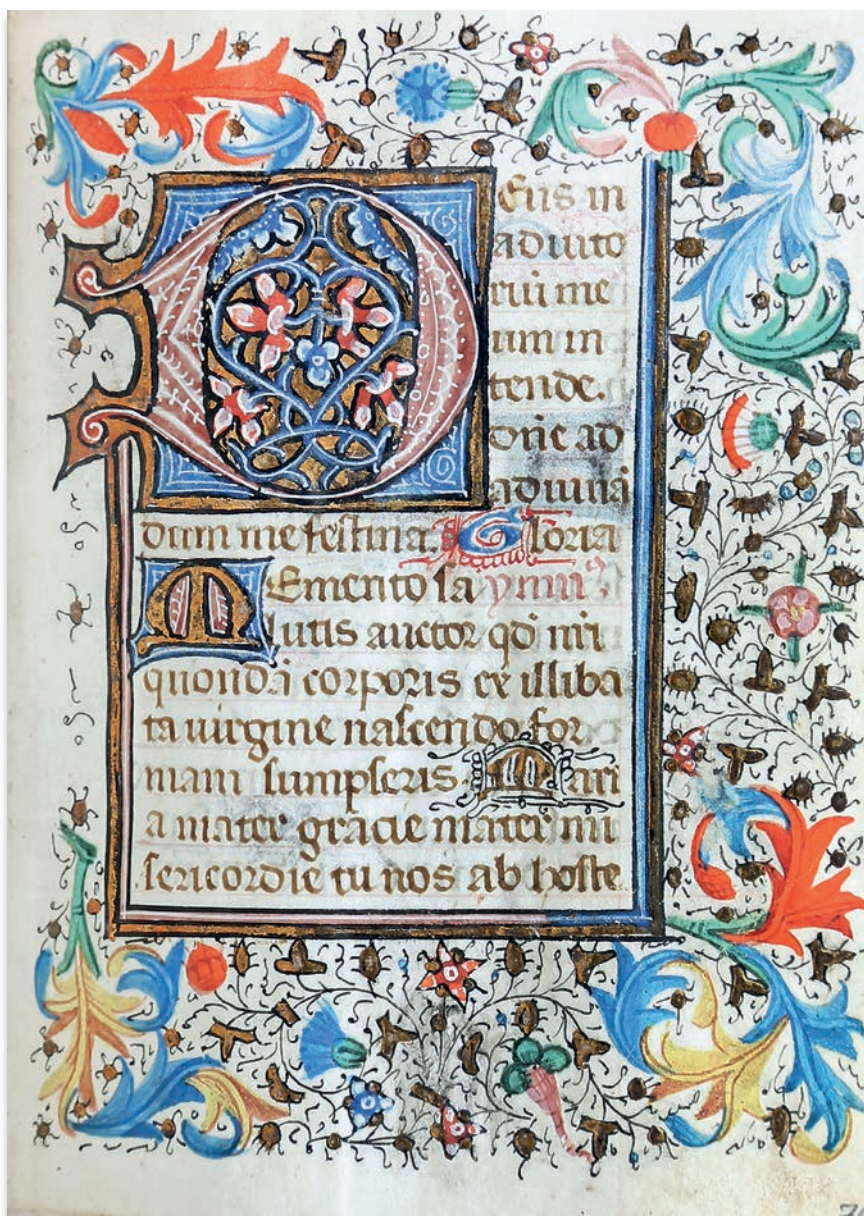 Deus in
adiuto
riū me
um in
tende.
dn̄e ad
adiuuā
dum me festina. Gloria
Memento sa ymnus
lutis auctor qd̄ nr̄i
quondā corporis ex illiba
ta uirgine nascendo for
mam sumpseris Mari
a mater gracie mater mi
sericordie tu nos ab hoste